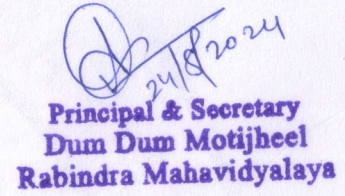 24/8/2024
Principal & Secretary
Dum Dum Motijheel
Rabindra Mahavidyalaya